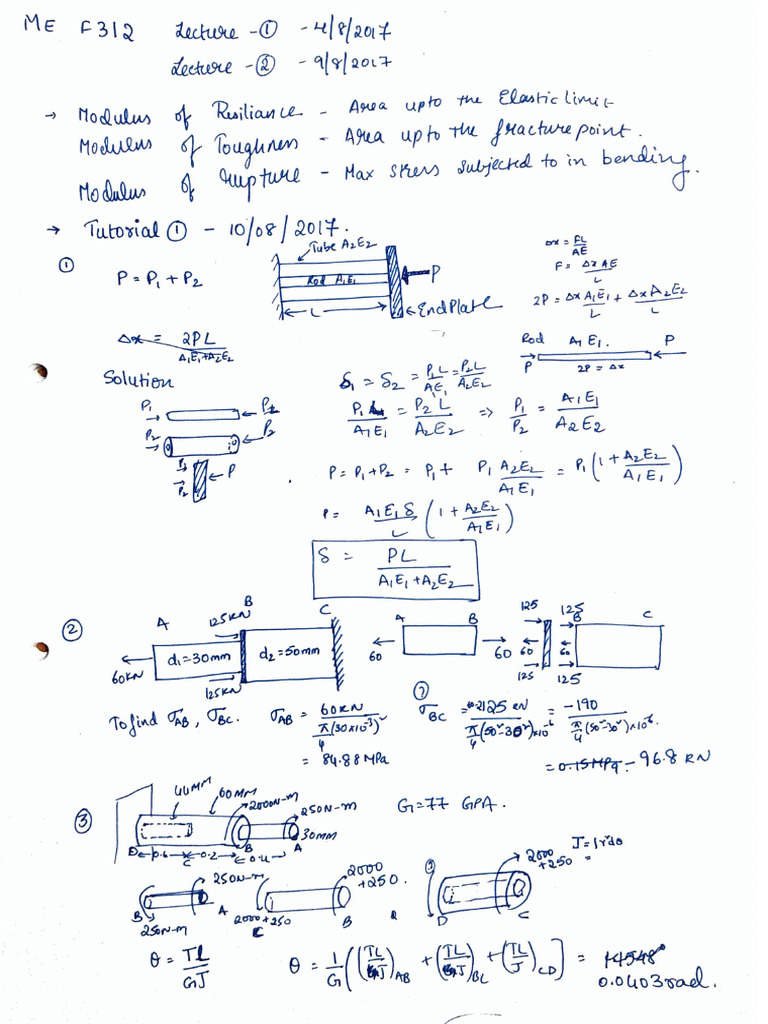 ME F312 Lecture - ① - 4/8/2017
Lecture - ② - 9/8/2017
→ Modulus of Resiliance - Area upto the Elastic limit
Modulus of Toughness - Area upto the fracture point.
Modulus of rupture - Max stress subjected to in bending.
→ Tutorial ① - 10/08/2017.
①
P = P₁ + P₂
Tube A₂E₂
Rod A₁E₁
P
L
End Plate
Δx = FL/AE
F = Δx AE/L
2P = Δx A₁E₁/L + Δx A₂E₂/L
Δx = 2PL/A₁E₁+A₂E₂
Rod A₁E₁. P
P 2P = Δx
Solution
P₁ P₁
P₂ P₂
P₁ P
P₂
δ₁ = δ₂ = P₁L/AE₁ = P₂L/A₂E₂
P₁L/A₁E₁ = P₂L/A₂E₂ ⇒ P₁/P₂ = A₁E₁/A₂E₂
P = P₁+P₂ = P₁ + P₁ A₂E₂/A₁E₁ = P₁(1 + A₂E₂/A₁E₁)
P = A₁E₁δ/L (1 + A₂E₂/A₁E₁)
δ = PL/A₁E₁+A₂E₂
②
A 125KN B C
60KN d₁=30mm d₂=50mm
125KN
A B
60 60
125 125 B C
60 60
125 125
To find σAB, σBC. σAB = 60KN/π/4(30×10⁻³)²
= 84.88 MPa
? σBC = -190/π/4(50²-30²)×10⁻⁶
= 0.15MPa - 96.8 KN
③
44MM 60MM 2000N-m 250N-m
30mm
D 0.6 C 0.2 B 0.4 A
G=77 GPA.
250N-m
B A
250N-m
2000 +250
2000+250 C B
?
2000 +250
D C
θ = TL/GJ
θ = 1/G((TL/J)AB + (TL/J)BC + (TL/J)CD] =
0.0403rad.